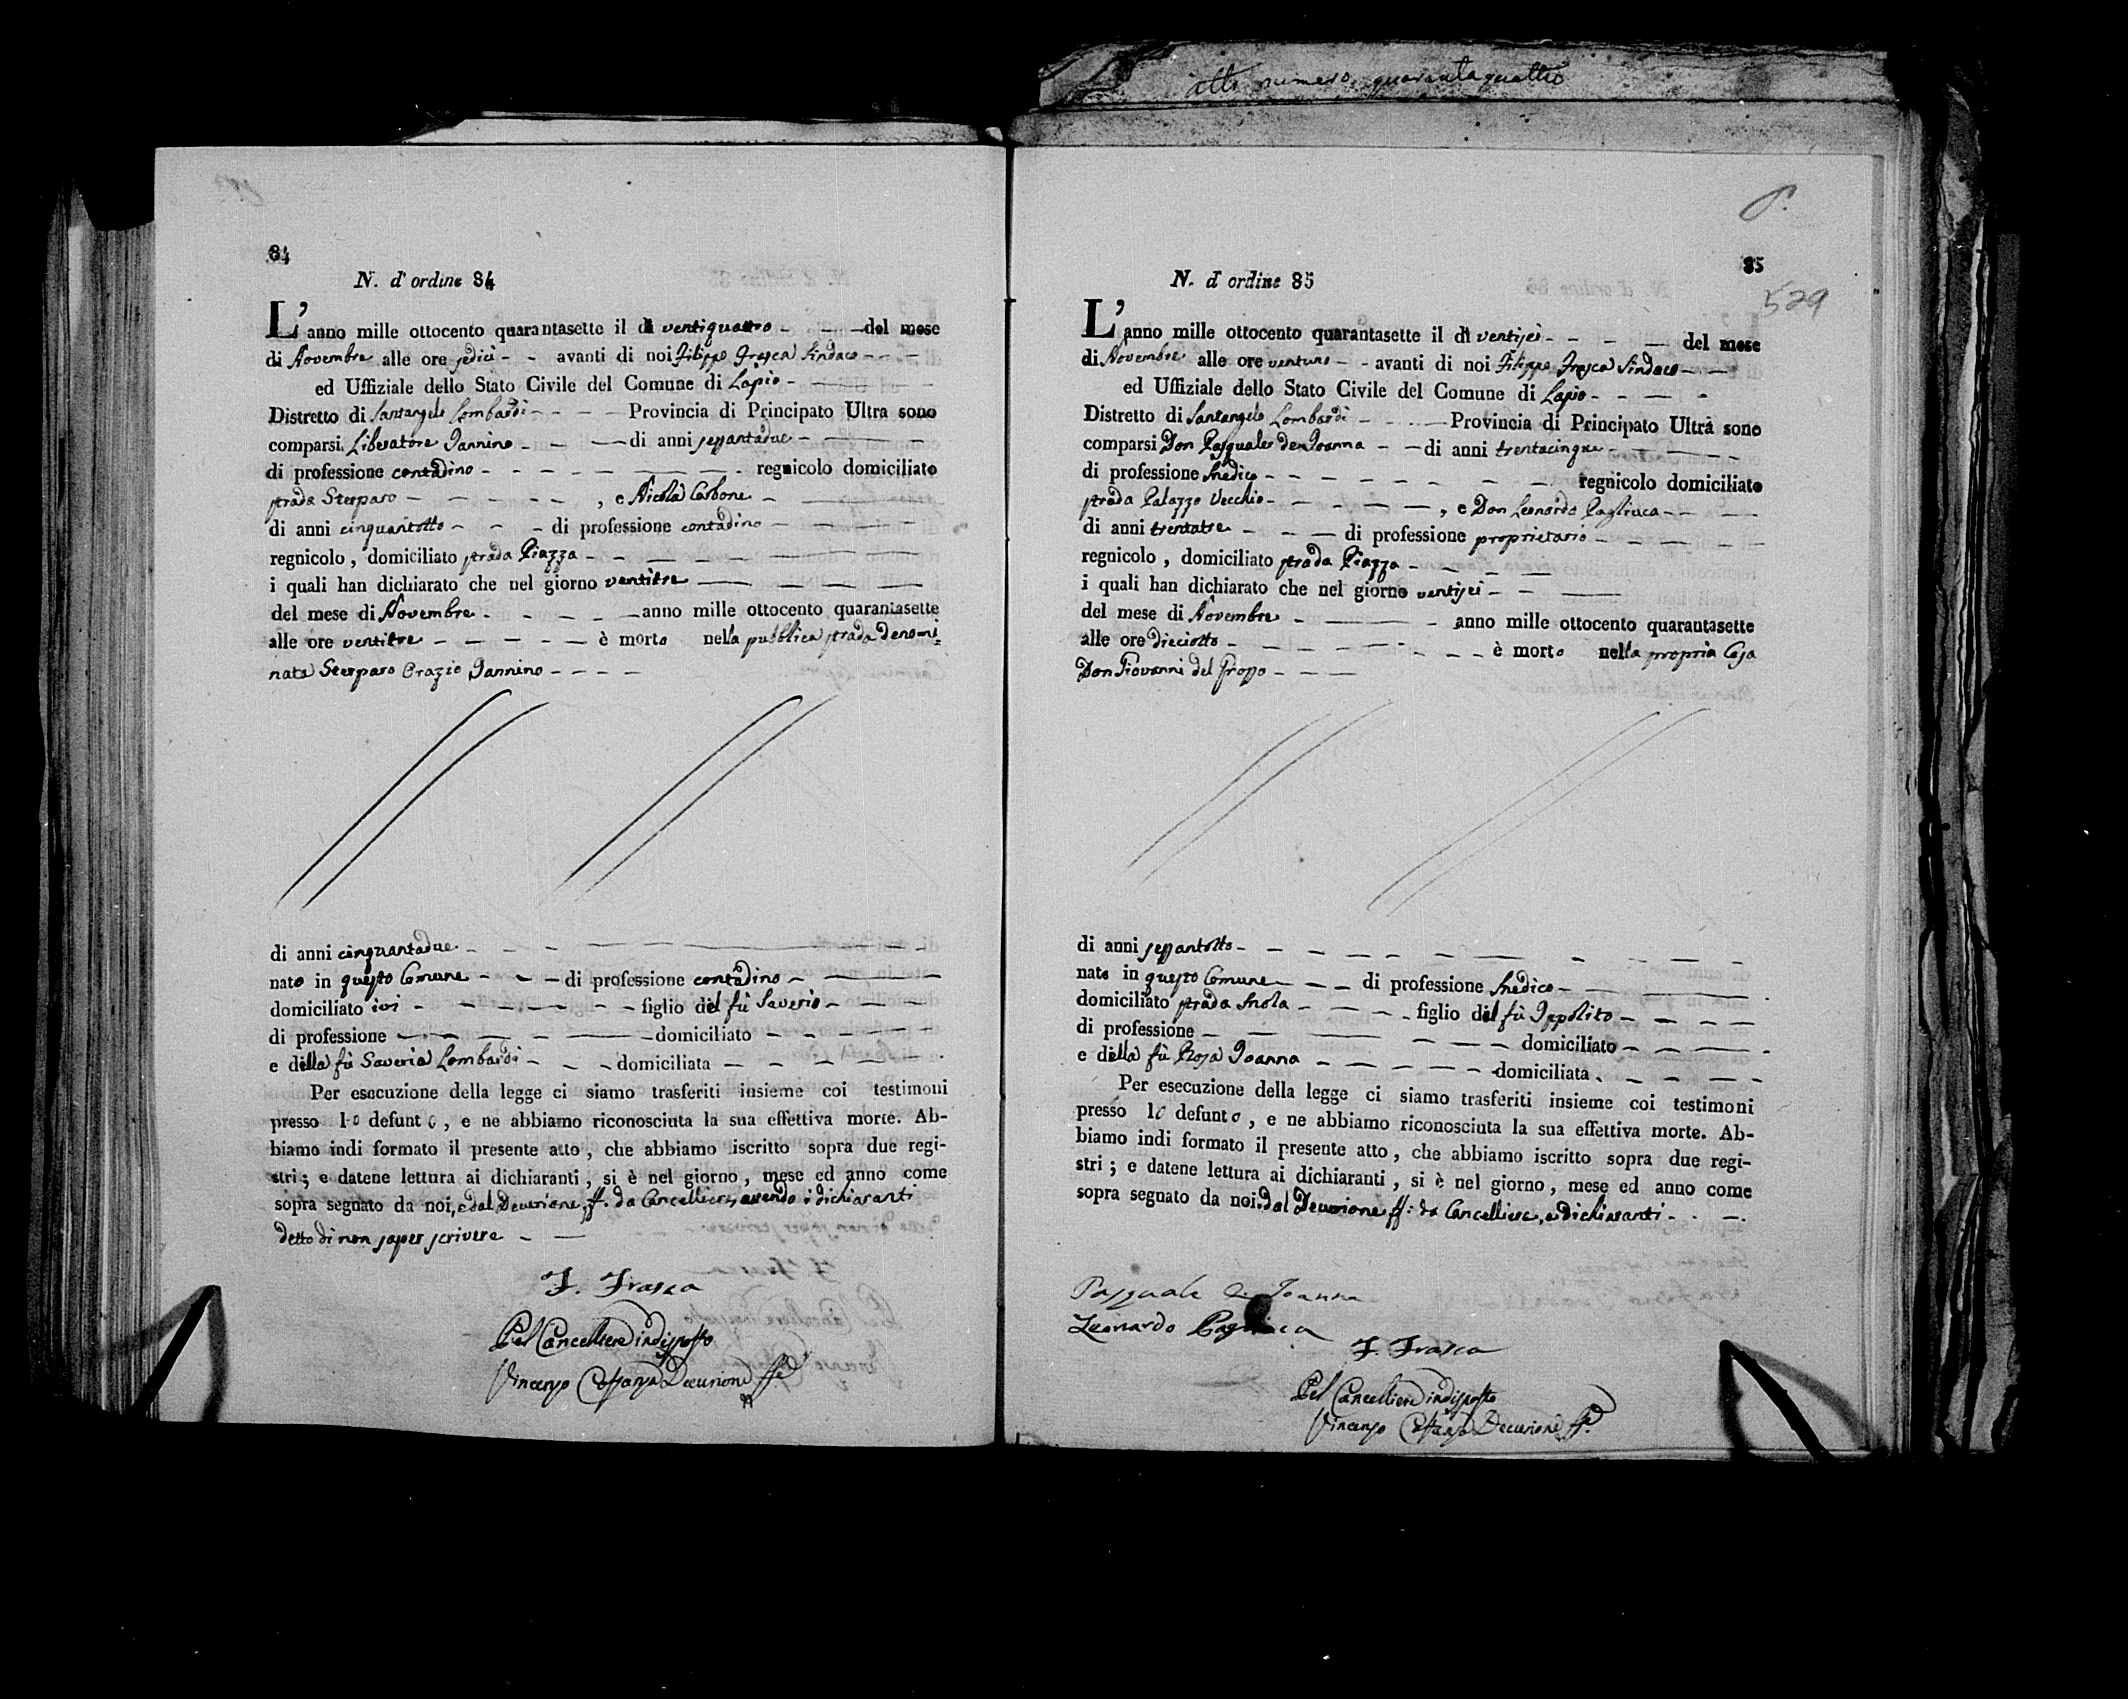 atti numero quarantaquattro
84
N. d' ordine 84
L' anno mille ottocento quarantasette il dì ventiquattro - - - del mese
di Novembre alle ore sedici - - avanti di noi Filippo Frasca Sindaco - - -
ed Uffiziale dello Stato Civile del Comune di Lapio - - - -
Distretto di Santangelo Lombardi - - - - Provincia di Principato Ultra sono
comparsi Liberatore Iannino - - - di anni sessantadue - - -
di professione contadino - - - - - - - regnicolo domiciliato
strada Sterparo - - - - - - , e Nicola Carbone - - -
di anni cinquantotto - - - di professione contadino - - - -
regnicolo , domiciliato strada Piazza - - - - - - -
i quali han dichiarato che nel giorno ventitre - - - -
del mese di Novembre - - - - - anno mille ottocento quarantasette
alle ore ventitre - - - - - è morto nella pubblica strada denomi=
nata Sterparo Orazio Iannino - - - -
di anni cinquantadue - - - - - -
nato in questo Comune - - - di professione contadino - - - -
domiciliato ivi - - - - - - figlio del fù Saverio - - - -
di professione - - - - - domiciliato - - - - -
e della fù Saveria Lombardi - - - domiciliata - - - - -
Per esecuzione della legge ci siamo trasferiti insieme coi testimoni
presso lo defunto , e ne abbiamo riconosciuta la sua effettiva morte. Ab-
biamo indi formato il presente atto , che abbiamo iscritto sopra due regi-
stri ; e datene lettura ai dichiaranti , si è nel giorno , mese ed anno come
sopra segnato da noi, e dal Decurione ff. da Cancelliere, avendo i dichiaranti
detto di non saper scrivere - -
F. Frasca
Pel Cancelliere indisposto
Vincenzo Decurione ff.
85
529
N. d' ordine 85
L' anno mille ottocento quarantasette il dì ventisei - - - - del mese
di Novembre alle ore ventuno - - avanti di noi Filippo Frasca Sindaco - -
ed Uffiziale dello Stato Civile del Comune di Lapio - - - -
Distretto di Santangelo Lombardi - - - - Provincia di Principato Ultra sono
comparsi Don Pasquale de Joanna - - di anni trentacinque - - - -
di professione Medico - - - - - - - - regnicolo domiciliato
strada Palazzo Vecchio - - - - - - , e Don Leonardo Pagliuca - - -
di anni trentatre - - - di professione proprietario - - - - -
regnicolo , domiciliato strada Piazza - - - -
i quali han dichiarato che nel giorno ventisei - - -
del mese di Novembre - - - anno mille ottocento quarantasette
alle ore dieciotto - - - - - - - - è morto nella propria Casa
Don Giovanni del Grosso - - -
di anni sessantotto - - - - - - - - - -
nato in questo Comune - - - di professione Medico - - -
domiciliato strada Mola - - - - figlio del fù Ippolito - - - -
di professione - - - - - - domiciliato - - - -
e della fù Rosa Joanna - - - - - domiciliata - - - - -
Per esecuzione della legge ci siamo trasferiti insieme coi testimoni
presso lo defunto , e ne abbiamo riconosciuta la sua effettiva morte. Ab-
biamo indi formato il presente atto , che abbiamo iscritto sopra due regi-
stri ; e datene lettura ai dichiaranti , si è nel giorno , mese ed anno come
sopra segnato da noi, dal Decurione ff. da Cancelliere, e dichiaranti - - -
Pasquale de Joanna
Leonardo Pagliuca
F. Frasca
Pel Cancelliere indisposto
Vincenzo Decurione ff.